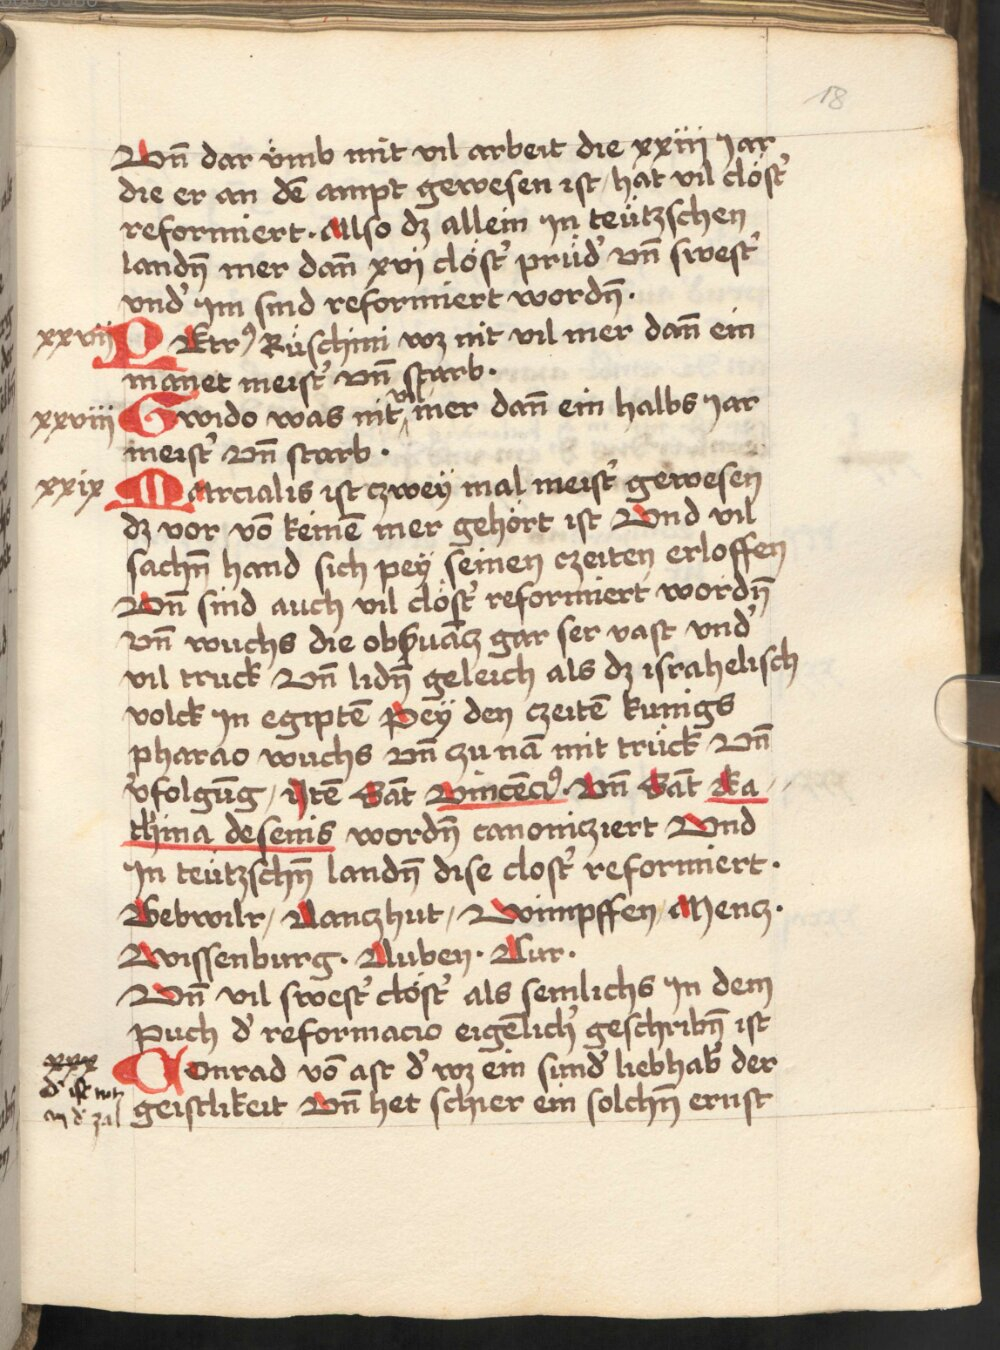 18
Vn̄ dar v̈mb mit vil arbeit die xxiii Jar
die er an dē ampt gewesen ist / hat vil clöst̓
reformiert. Also dz allein Jn teützschen
landn̄ mer dan̄ xvi clöst̓ prüd̓ vn̄ swest̓
vnd̓ Jm sind reformiert wordn̄.
xxvii PEtrꝰ Rüschini wz nit vil mer dan̄ ein
manet meist̓ vn̄ starb.
xxviii Gwido was nit vil mer dan̄ ein halbs Jar
meist̓ vn̄ starb.
xxix Marcialis ist czwey mal meist̓ gewesen
dz vor vō keinē mer gehört ist Vnd vil
sachn̄ hand sich pey seinen czeiten erloffen
Vn̄ sind auch vil clöst̓ reformiert wordn̄
vn̄ wuchs die obs̓uācz gar ser vast vnd̓
vil truck Vn̄ lidn̄ geleich als dz israhelisch
volck Jn egiptē Pey den czeitē kunigs
pharao wuchs vn̄ zu nā mit trück Vn̄
v̓folgūg / Jtē Sāt Vincēciꝰ. Vn̄ Sāt Ka
th̓ina de senis wordn̄ canonicziert Vnd
Jn teützschn̄ landn̄ dise clost̓ reformiert.
Gebwilr / Lanczhut / Wimpffen Mencz.
Wissenburg. Auben. Kur.
Vn̄ vil swest̓ clöst̓ als semlichs Jn dem
puch d̓ reformacio eigēlich̓ geschribn̄ ist
xxx Conrad vō ast d̓ wz ein sund̓ liebhab̓ der
d̓ ist nit
in d̓ zal
geistlikeit Vn̄ het schier ein solchn̄ ernst